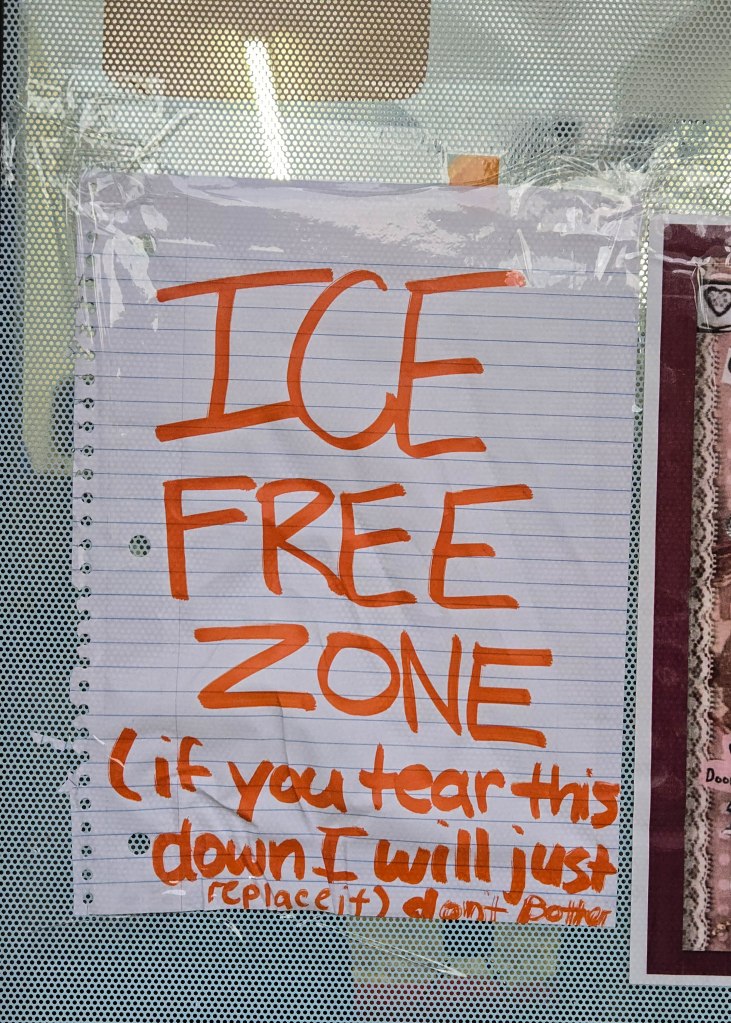 ICE
FREE
ZONE
(if you tear this
down I will just
replace it) don't Bother
Door